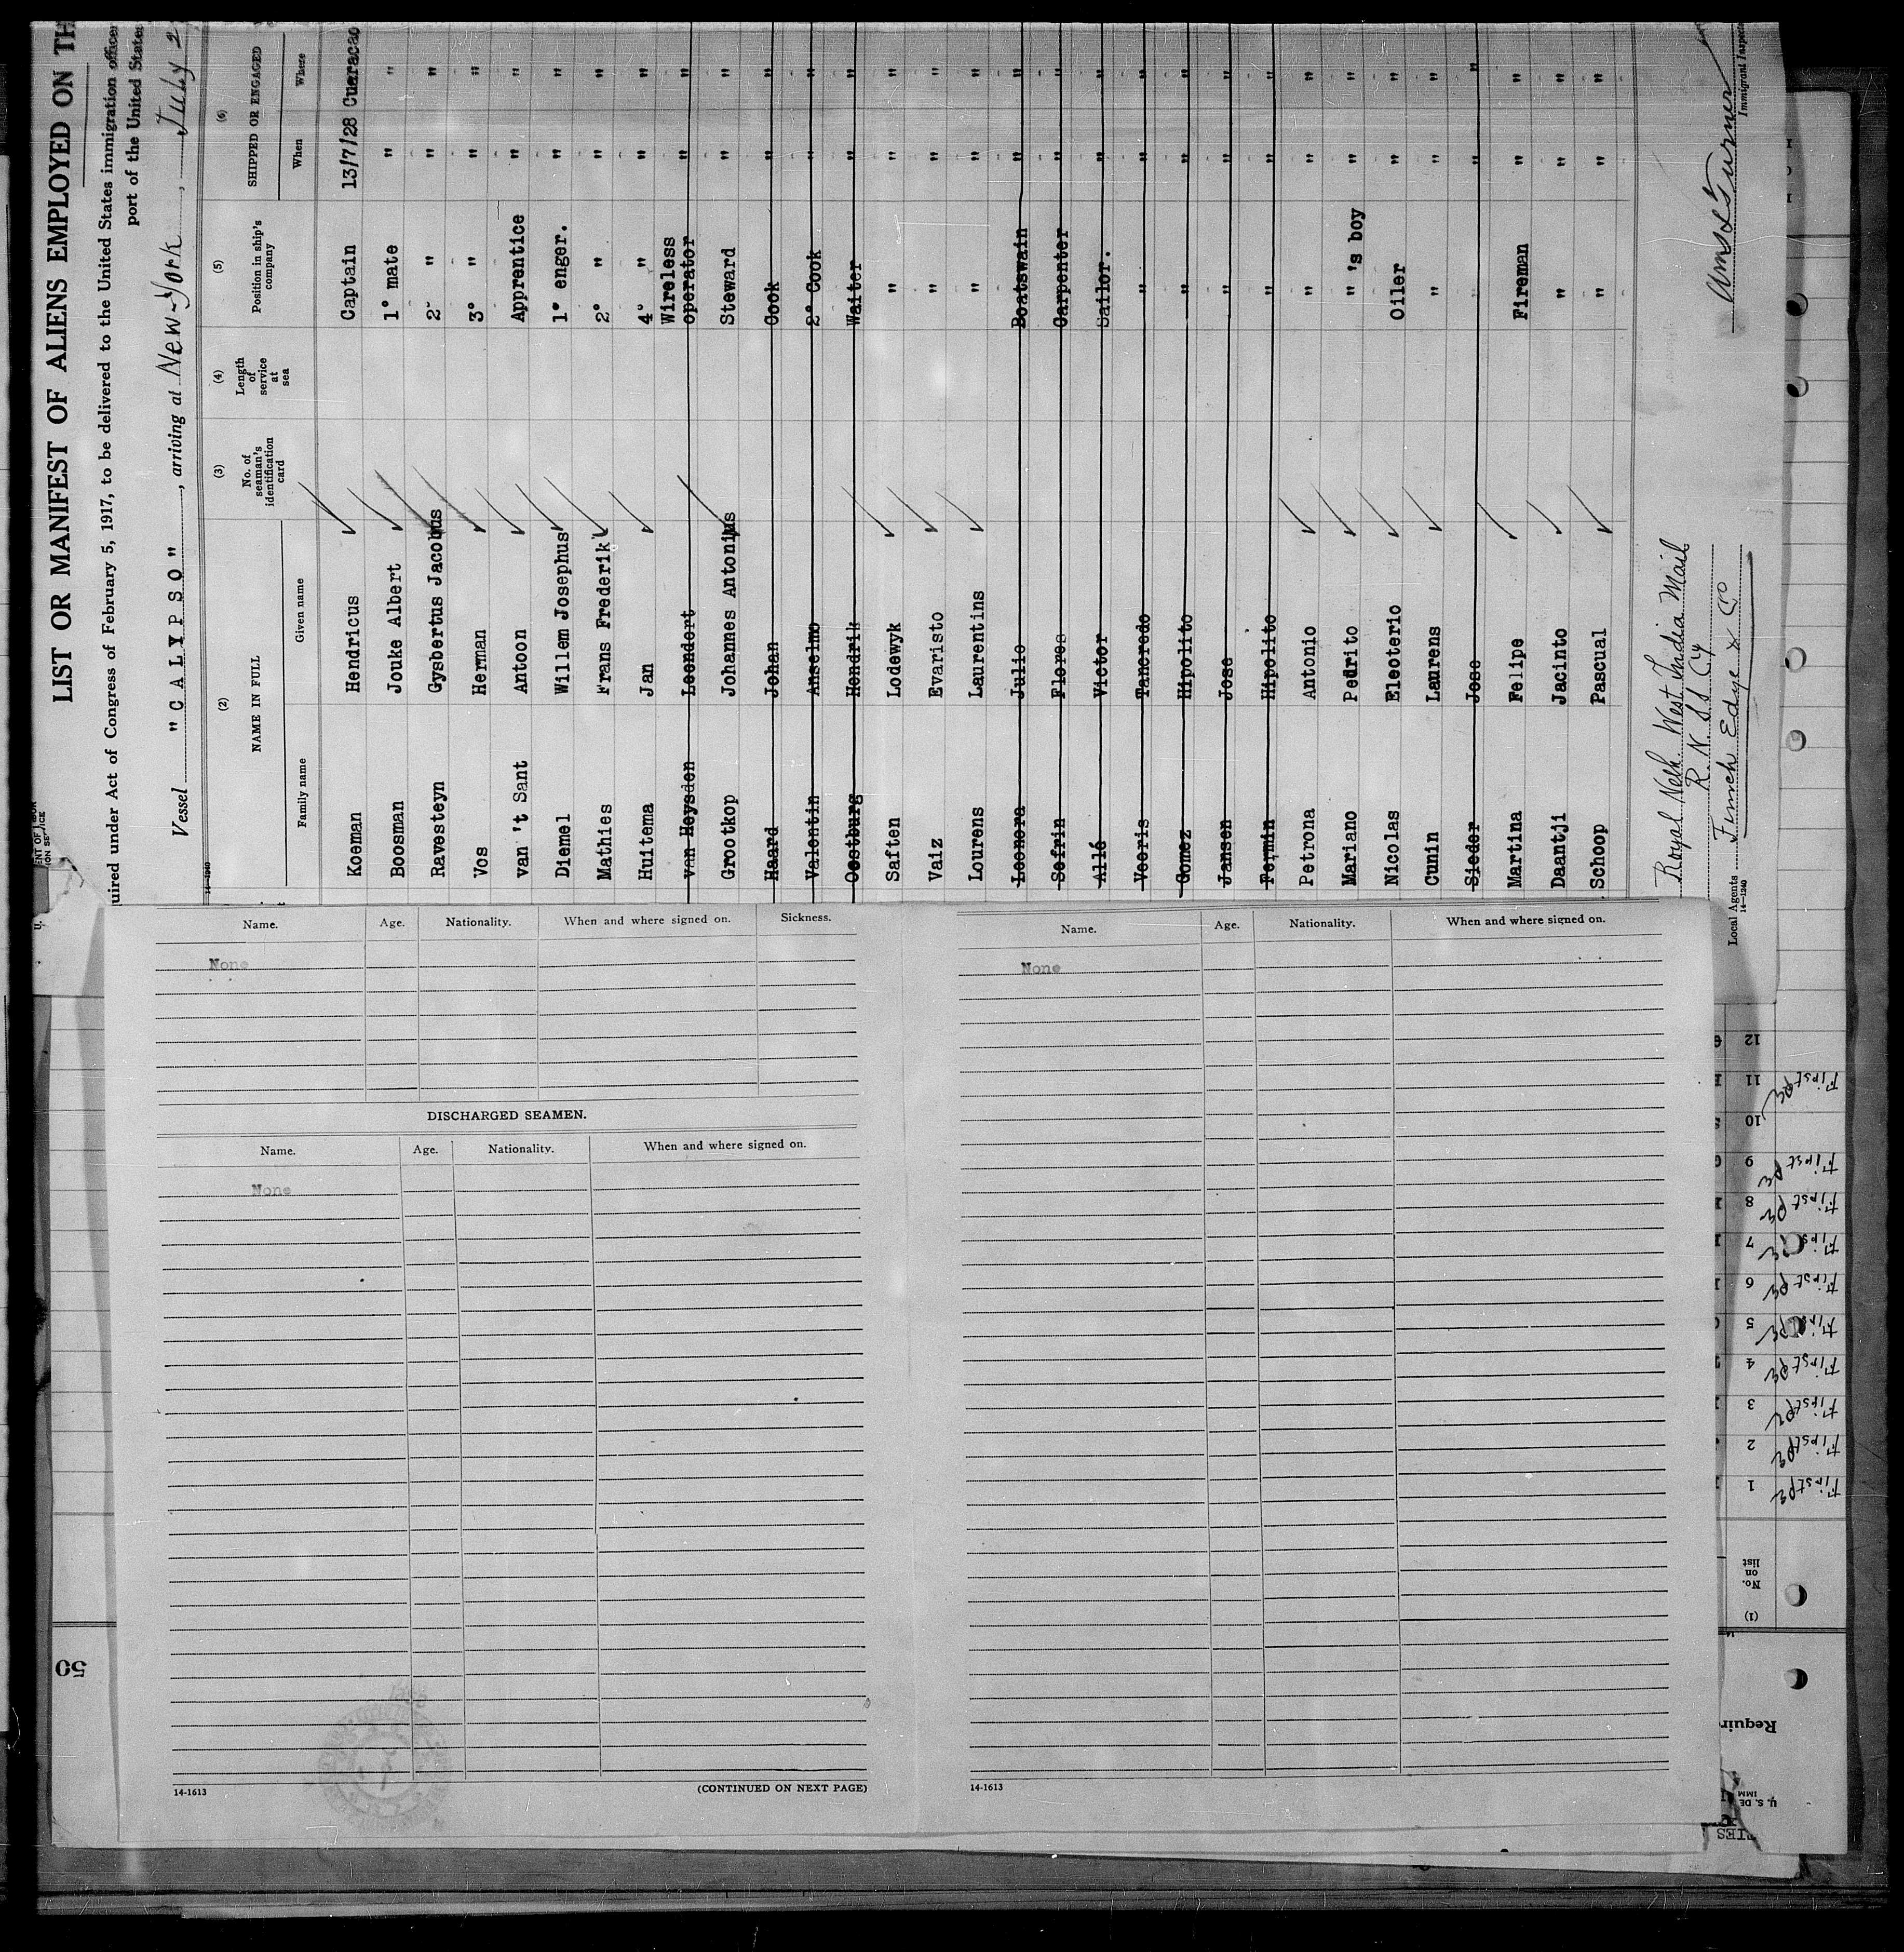 LIST OR MANIFEST OF ALIENS EMPLOYED ON TH
uired under Act of Congress of February 5, 1917, to be delivered to the United States immigration officer
port of the United States
Vessel "CALYPSO", arriving at New-York, July 2
(2) (3) (4) (5) (6)
NAME IN FULL No. of seaman's identification card Length of service at sea Position in ship's company SHIPPED OR ENGAGED
Family name Given name When Where
Koeman Hendricus Captain 13/7/28 Cuaracao
Boosman Jouke Albert 1° mate " "
Ravesteyn Gysbertus Jacobus 2° " " "
Vos Herman 3° " " "
van 't Sant Antoon Apprentice " "
Diemel Willem Josephus 1° enger. " "
Mathies Frans Frederik 2° " " "
Huitema Jan 4° " " "
van Heysden Leendert Wireless operator " "
Grootkop Johannes Antonius Steward " "
Haard Johan Cook " "
Valentin Anselmo 2° Cook " "
Oostburg Hendrik Waiter " "
Saften Lodewyk " " "
Vaiz Evaristo " " "
Lourens Laurentins " " "
Leonora Julio Boatswain " "
Sefrin Flores Carpenter " "
Allé Victor Sailor. " "
Veeris Tancredo " " "
Gomez Hipolito " " "
Jansen Jose " " "
Fermin Hipolito " " "
Petrona Antonio " " "
Mariano Pedrito " 's boy " "
Nicolas Eleoterio Oiler " "
Cunin Laurens " " "
Sieder Jose " " "
Martina Felipe Fireman " "
Daantji Jacinto " " "
Schoop Pascual " " "
Royal Neth. West India Mail
R. N. SS Cy
Local Agents Funch Edye & Co
14-1240
Immigrant Inspecto
Name. Age. Nationality. When and where signed on. Sickness.
None
DISCHARGED SEAMEN.
Name. Age. Nationality. When and where signed on.
None
14-1613 (CONTINUED ON NEXT PAGE)
Name. Age. Nationality. When and where signed on.
None
14-1613
50
12
11 First
10
9 First
8 First
7 First
6 First
5 First
4 First
3 First
2 First
1 First
No. on list
(1)
Requir
U. S. DE
IMM